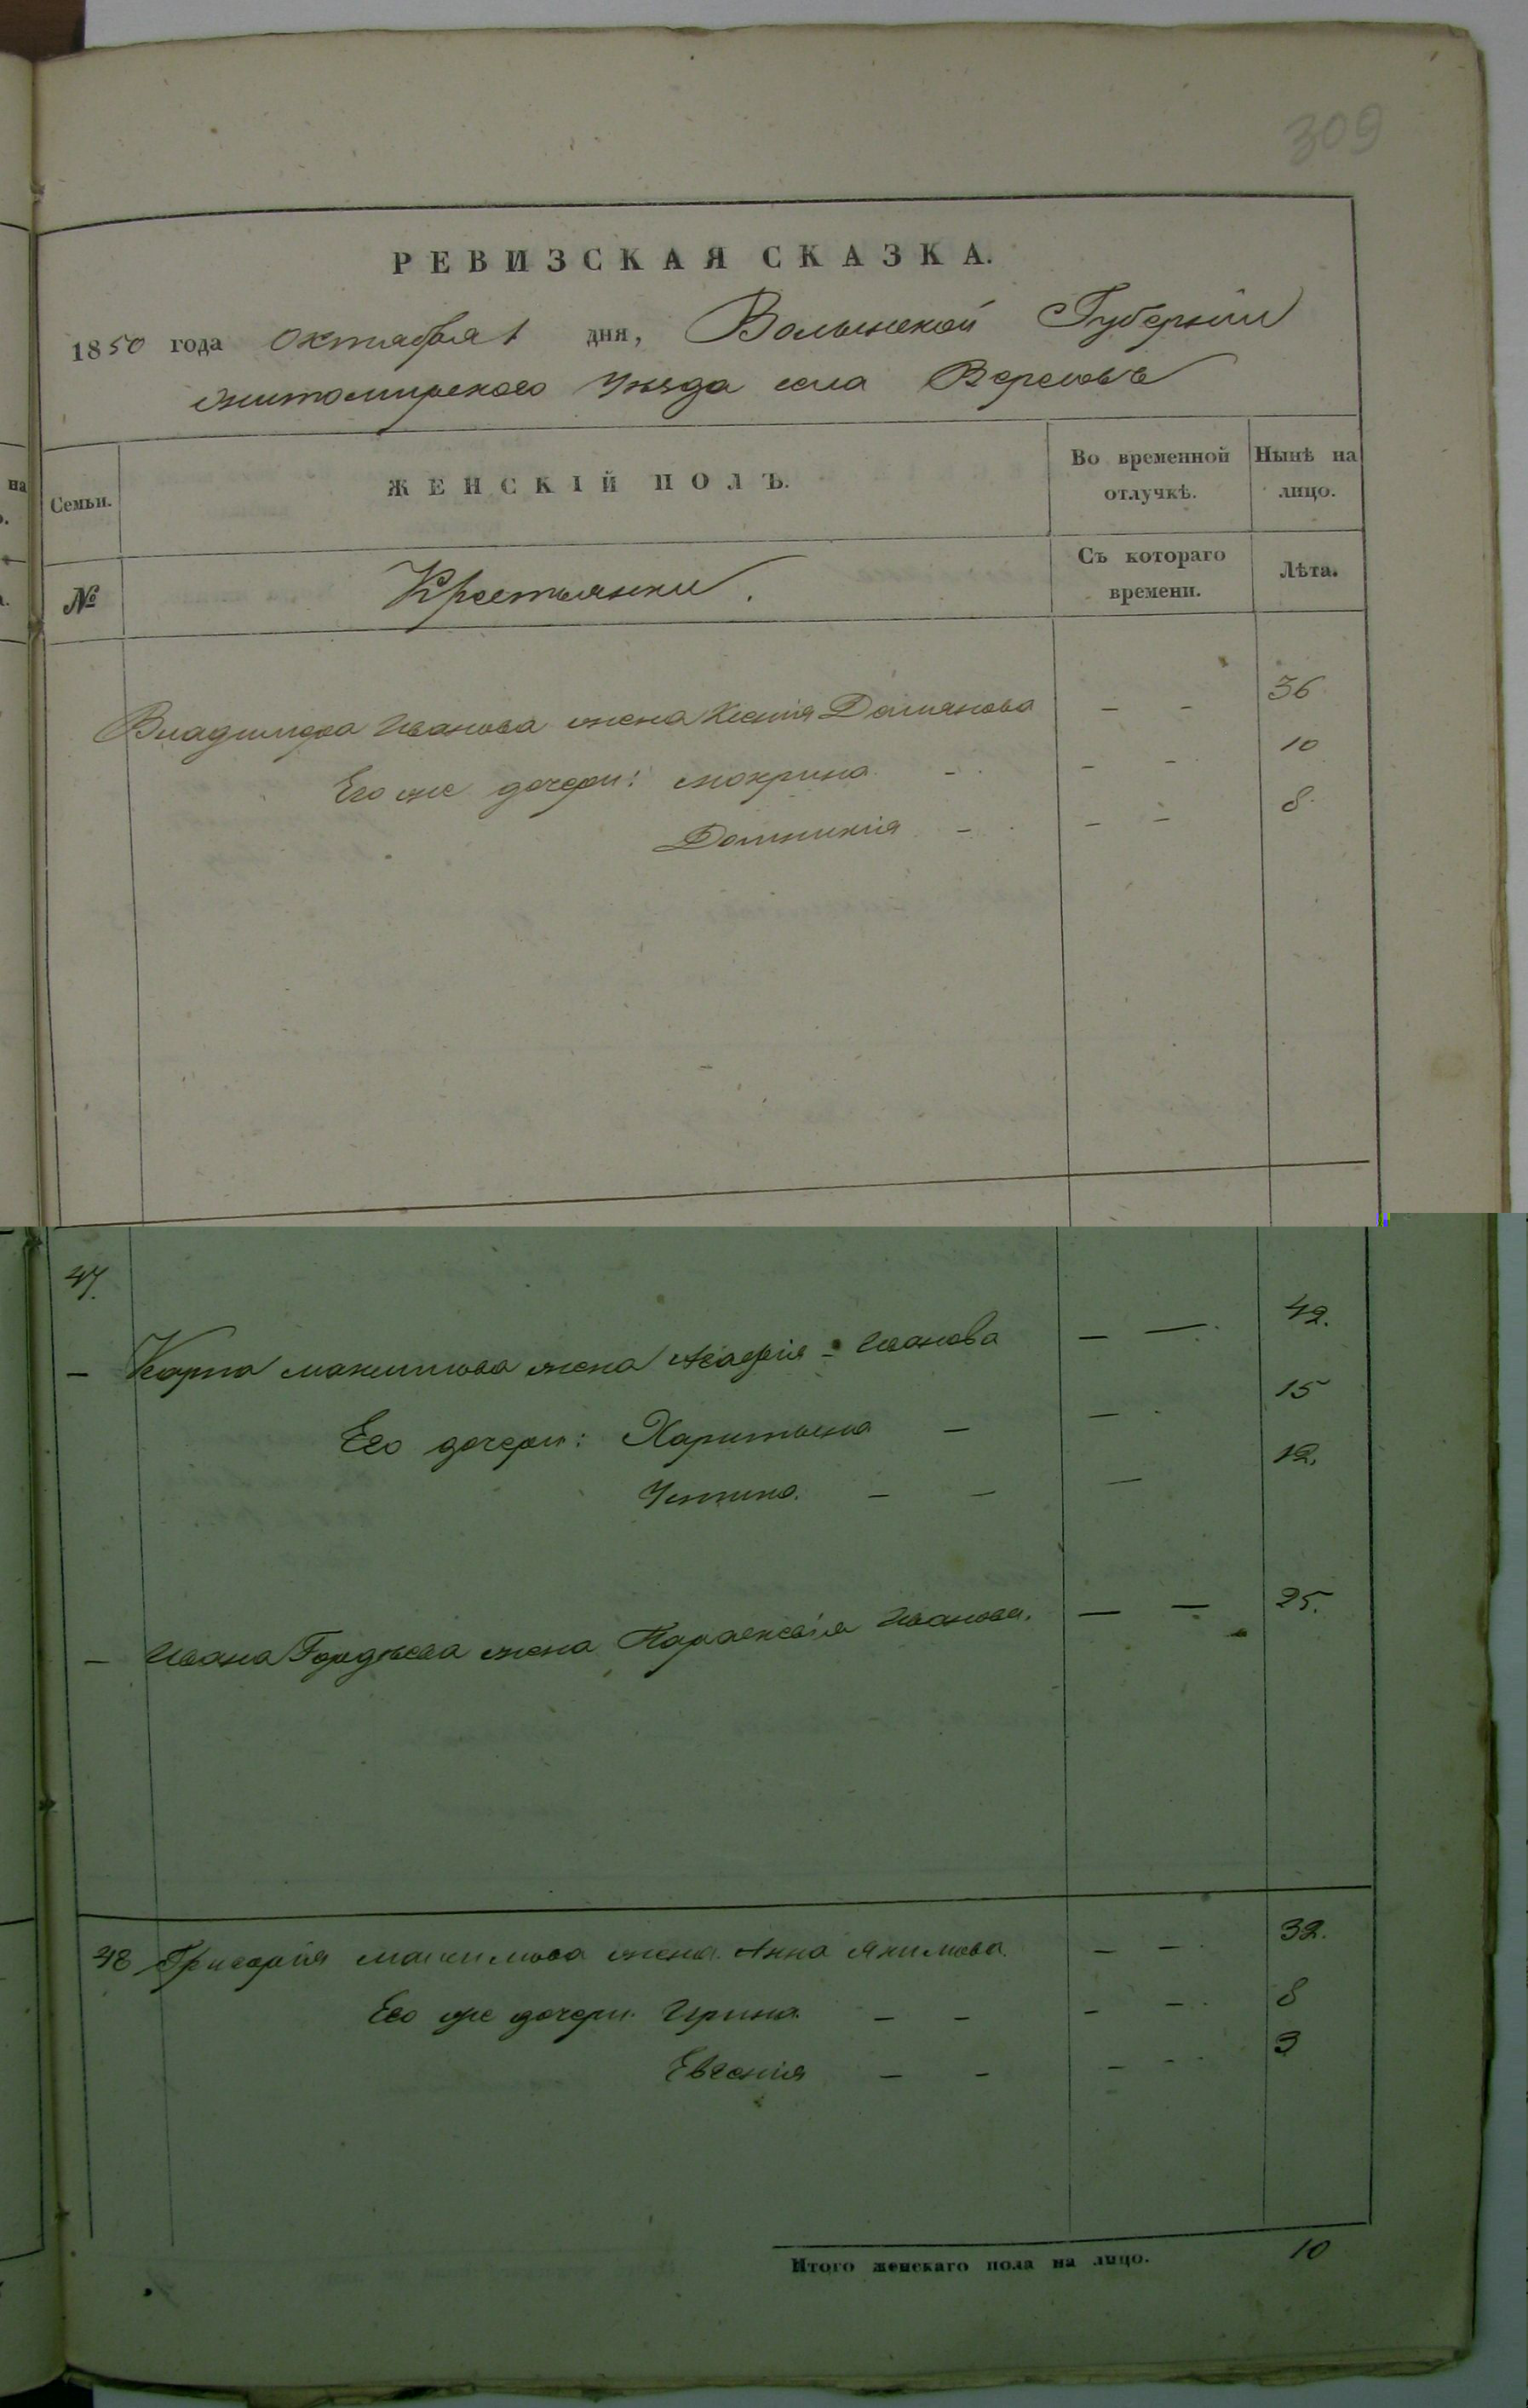 309
РЕВИЗСКАЯ СКАЗКА.
1850 года Октября 1 дня, Волынской Губернии
Житомирского Уѣзда села Вересовъ
Семьи. ЖЕНСКІЙ ПОЛЪ. Во временной отлучкѣ. Нынѣ на лицо.
№ Крестьянки. Съ котораго времени. Лѣта.
Владимера Иванова жена Ксенія Домянова - - 36
Его же дочери: Мокрина - - - 10
Домникія - - - 8
47.
- Карпа Максимова жена Агафія - Иванова - - 42.
Его дочери: Харитына - - 15
Устина. - - - 12.
- Ивана Гордѣева жена Параскевія Иванова. - - 25.
48 Григорія Максимова жена Анна Якимова. - - 32.
Его же дочери Ирина. - - - - 8
Евгенія - - - - 3
Итого женскаго пола на лицо. 10
на